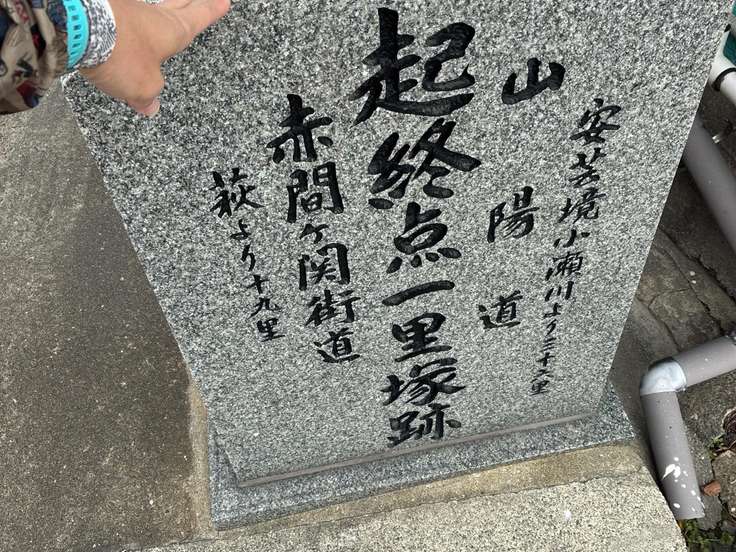 安芸境小瀬川より三十六里
山陽道
起終点一里塚跡
赤間ヶ関街道
萩より十九里